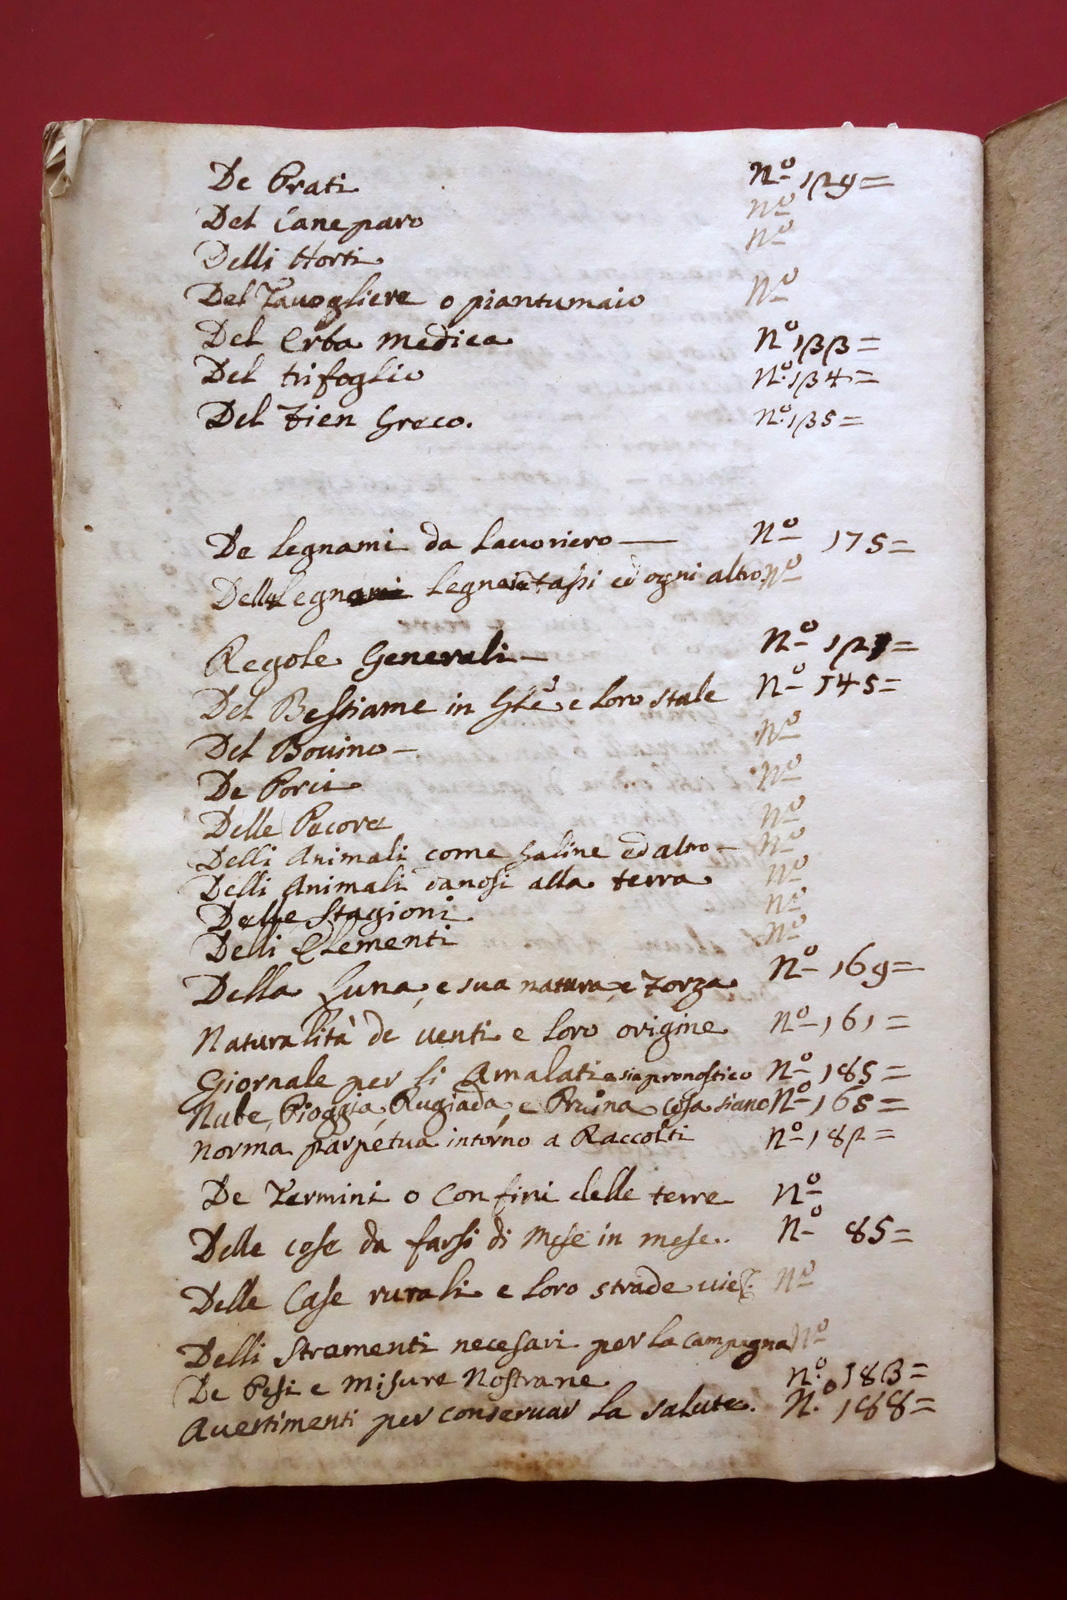 De Prati Nº 129=
Del Caneparo Nº
Delli Horti Nº
Del Vavogliere o piantumaio Nº
Del Erba medica Nº 133=
Del trifoglio Nº 134=
Del Fien Greco. Nº 135=
De legnami da lavoriero — Nº 175=
Delli legnami legnami tassi ed ogni altro Nº
Regole Generali — Nº 121=
Del Bestiame in Gle e loro stale Nº 145=
Del Bovino — Nº
De Porci Nº
Delle Pecore Nº
Delli Animali come galine ed altro — Nº
Delli Animali danosi alla terra Nº
Delle Stagioni Nº
Delli Elementi Nº
Della Luna, e sua natura, e Forza Nº 169=
Naturalità de venti e loro origine Nº 161=
Giornale per li Amalati o sia pronostico Nº 185=
Nube, Pioggia, Rugiada, e Bruina cosa siano Nº 165=
Norma parpetua intorno a Raccolti Nº 182=
De Termini o Confini delle terre Nº
Delle cose da farsi di Mese in mese.. Nº 85=
Delle Case rurali e loro strade vie Nº
Delli Stramenti necesari per la campagna Nº
De Pesi e Misure Nostrane Nº 183=
Avertimenti per conservar la salute. N.º 188=